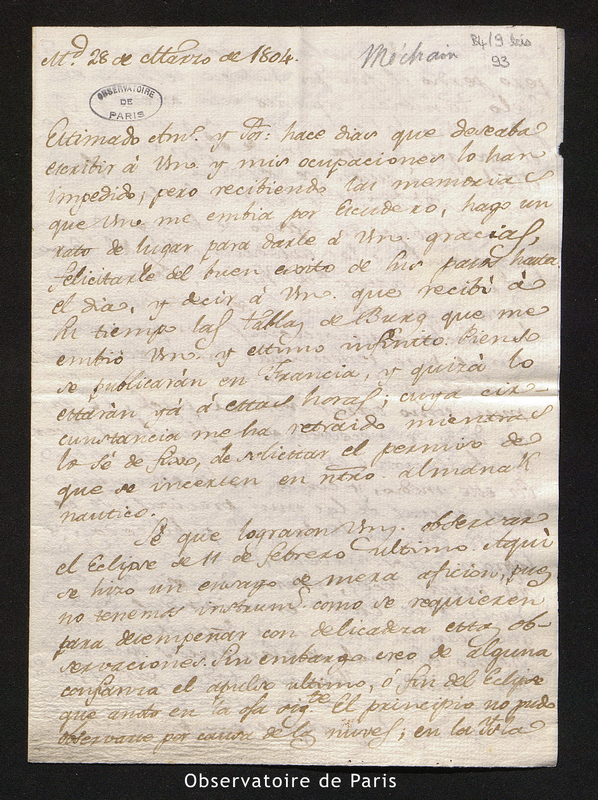 Md 28 de Marzo de 1804.
Méchain
84/9 bis
93
OBSERVATOIRE
DE
PARIS
Estimado Amo. y Sor: hace dias que deseaba
escribir à Vm. y mis ocupaciones lo han
impedido; pero recibiendo las memorias
que Vm. me embia por Escudero, hago un
rato de lugar para darle à Vm. gracias,
felicitarle del buen exito de sus hasta
el dia, y decir à Vm. que recibì à
su tiempo las tablas de Burg que me
embiò Vm. y estimo infinito. Pienso
se publicaràn en Francia, y quizà lo
estaràn yà à estas horas; cuya cir-
cunstancia me ha retraido mientras
lo sè de fixo, de solicitar el permiso de
que se incerten en ntro. almanak
nautico.
Sè que lograron Vms. observar
el Eclipse de 11 de febrero ultimo. Aquì
se hizo un ensayo de mera aficion, pues
no tenemos instrums. como se requieren
para desempeñar con delicadeza estas ob-
servaciones. Sin embargo creo de alguna
confianza el apulso ultimo, ò fin del Eclipse
que anoto en la oja sigte. El principio no pudo
observarse por causa de las nuves; en la Ysla
Observatoire de Paris